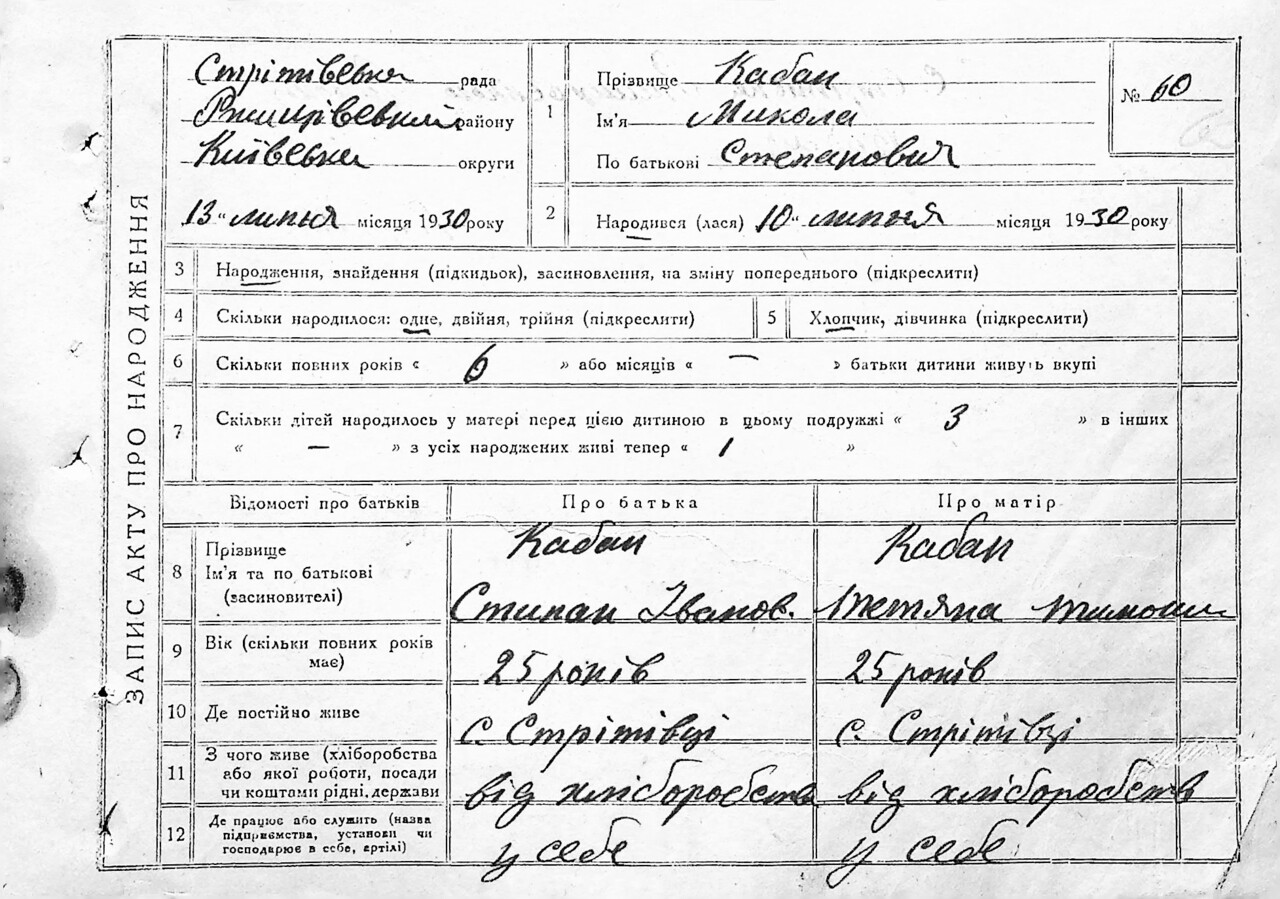 ЗАПИС АКТУ ПРО НАРОДЖЕННЯ
Стрітівська рада
Ржищівський району
Київська округи
13 „ липня місяця 1930 року
1 Прізвище Кабан
Ім'я Микола
По батькові Степанович
№ 60
2 Народився (лася) 10 „ липня місяця 1930 року
3 Народження, знайдення (підкидьок), засиновлення, на зміну попереднього (підкреслити)
4 Скільки народилося: одне, двійня, трійня (підкреслити)
5 Хлопчик, дівчинка (підкреслити)
6 Скільки повних років « 6 » або місяців « — » батьки дитини живуть вкупі
7 Скільки дітей народилось у матері перед цією дитиною в цьому подружжі « 3 » в інших
« — » з усіх народжених живі тепер « 1 »
Відомості про батьків Про батька Про матір
8 Прізвище Кабан Кабан
Ім'я та по батькові
(засиновителі) Стипан Іванов. Тетяна Тимоши
9 Вік (скільки повних років
має) 25 років 25 років
10 Де постійно живе с. Стрітівці с. Стрітівці
11 З чого живе (хліборобства
або якої роботи, посади
чи коштами рідні, держави від хліборобства від хліборобств
12 Де працює або служить (назва
підприємства, установи чи
господарює в себе, артілі) у себе у себе